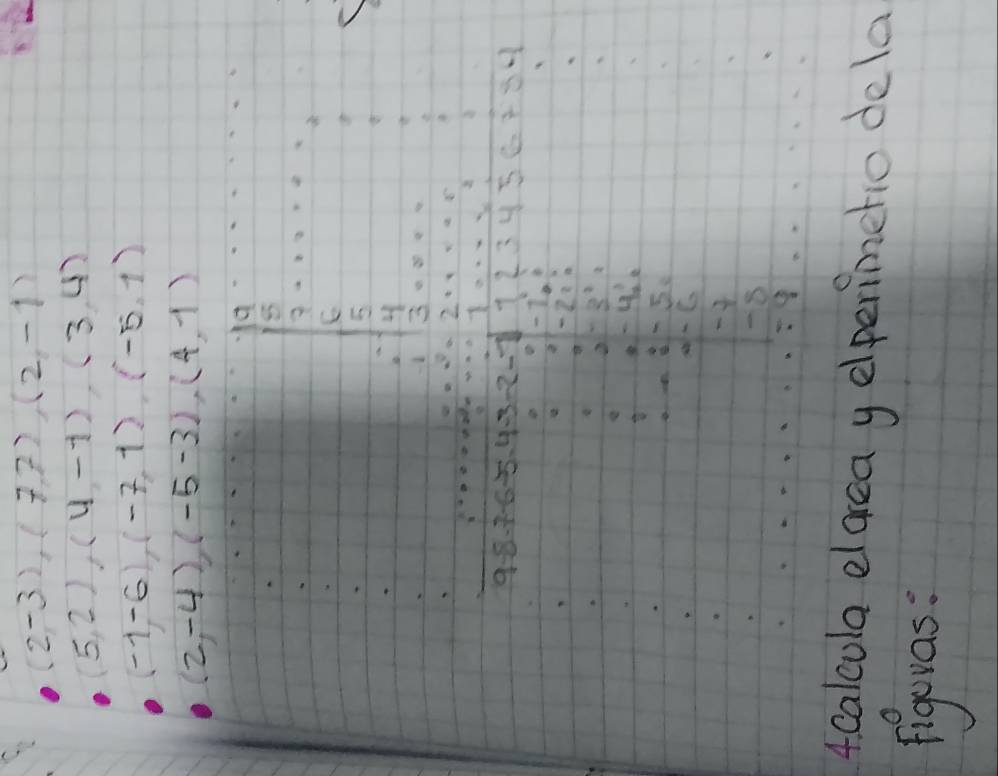 (2,-3),(7,7),(2,-1)
(5,2),(4,-1),(3,4)
(-1,-6),(-7,1),(-5,1)
(2,-4),(-5-3),(4,1)
9
8
7
6
5
4
3
2
1
9 8 7 6 5 4 3-2-1 1 2 3 4 5 6 7 8 9
-1
-2
-3
-4
-5
-6
-7
-8
9
4.Calcula el area y el perimetro de la
Figuras: